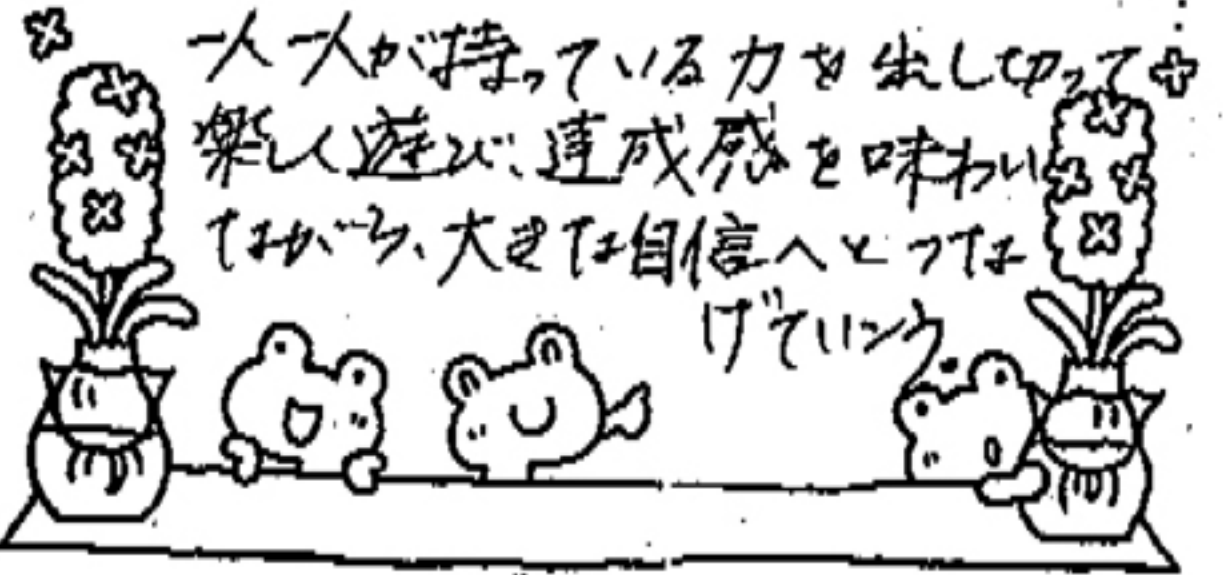 一人一人が持っている力を出し切って
楽しく遊び、達成感を味わい
ながら、大きな自信へとつな
げていこう